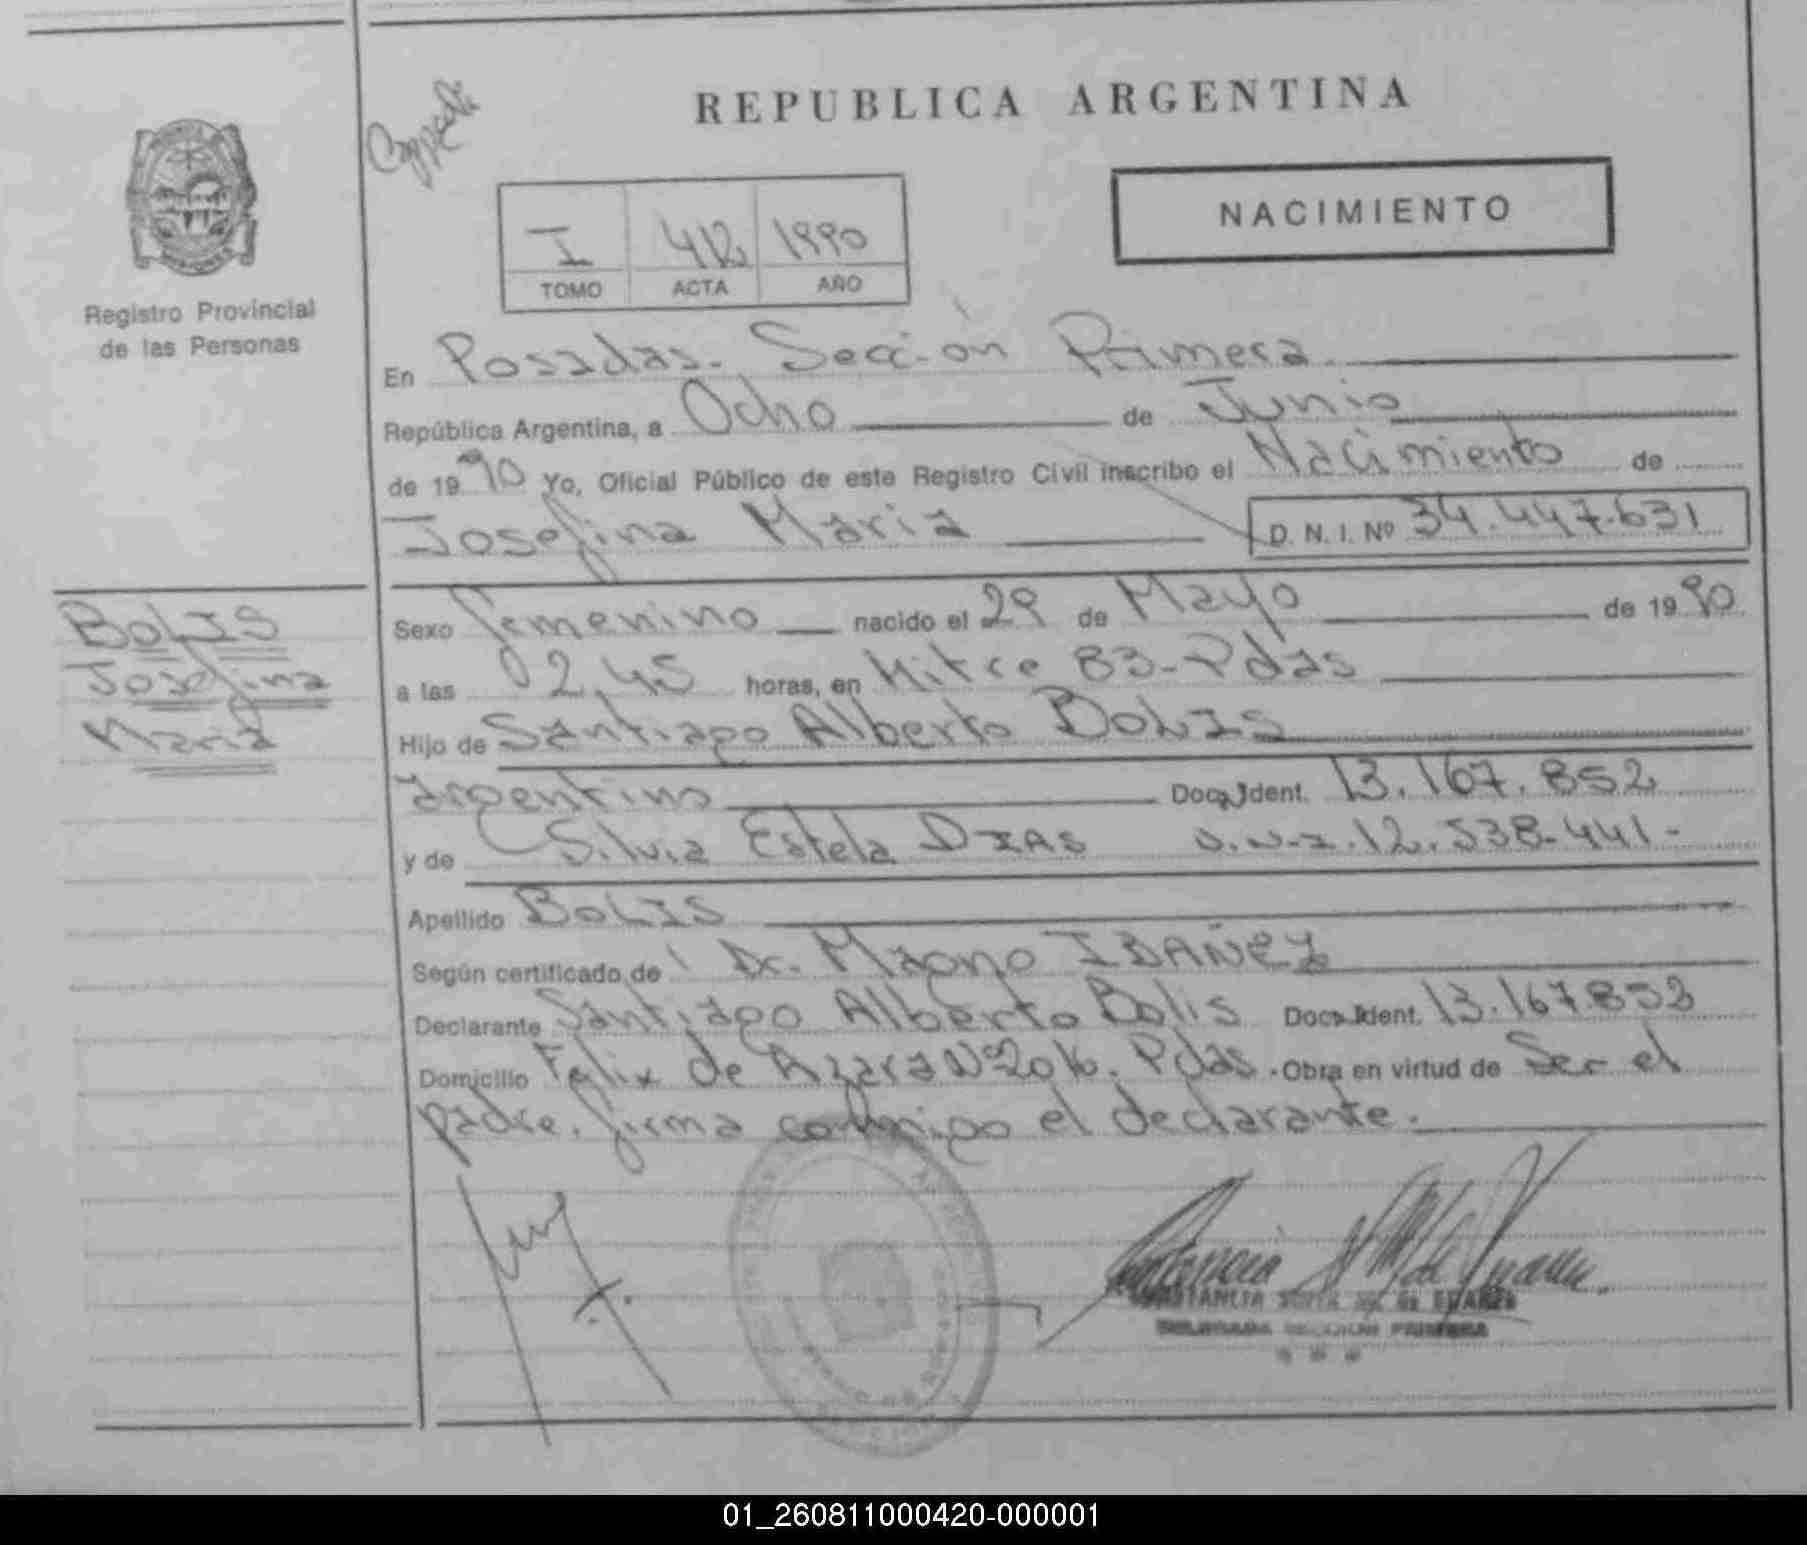 REPUBLICA ARGENTINA
NACIMIENTO
I 412 1990
TOMO ACTA AÑO
Registro Provincial
de las Personas
En Posadas. Sección Primera
República Argentina, a Ocho de Junio
de 1990 Yo, Oficial Público de este Registro Civil inscribo el Nacimiento de
Josefina Maria D. N. I. Nº 34.447.631
BOLIS
Josefina
Maria
Sexo femenino nacido el 29 de Mayo de 1990
a las 02,45 horas, en Mitre 83-Pdas
Hijo de Santiago Alberto BOLIS
argentino Doc. Ident. 13.167.852
y de Silvia Estela DIAS D.N.I.12.538.441-
Apellido BOLIS
Según certificado de Dr. Magno IBAÑEZ
Declarante Santiago Alberto Bolis Doc. Ident. 13.167.852
Domicilio Felix de Azara Nº2016. Pdas. Obra en virtud de Ser el
padre. firma conmigo el declarante.
DELEGADA SECCION PRIMERA
01_260811000420-000001